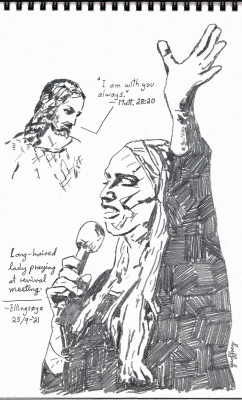 "I am with you
always."
— Matt. 28:20
Long-haired
lady praying
at revival
meeting
25/9-'21